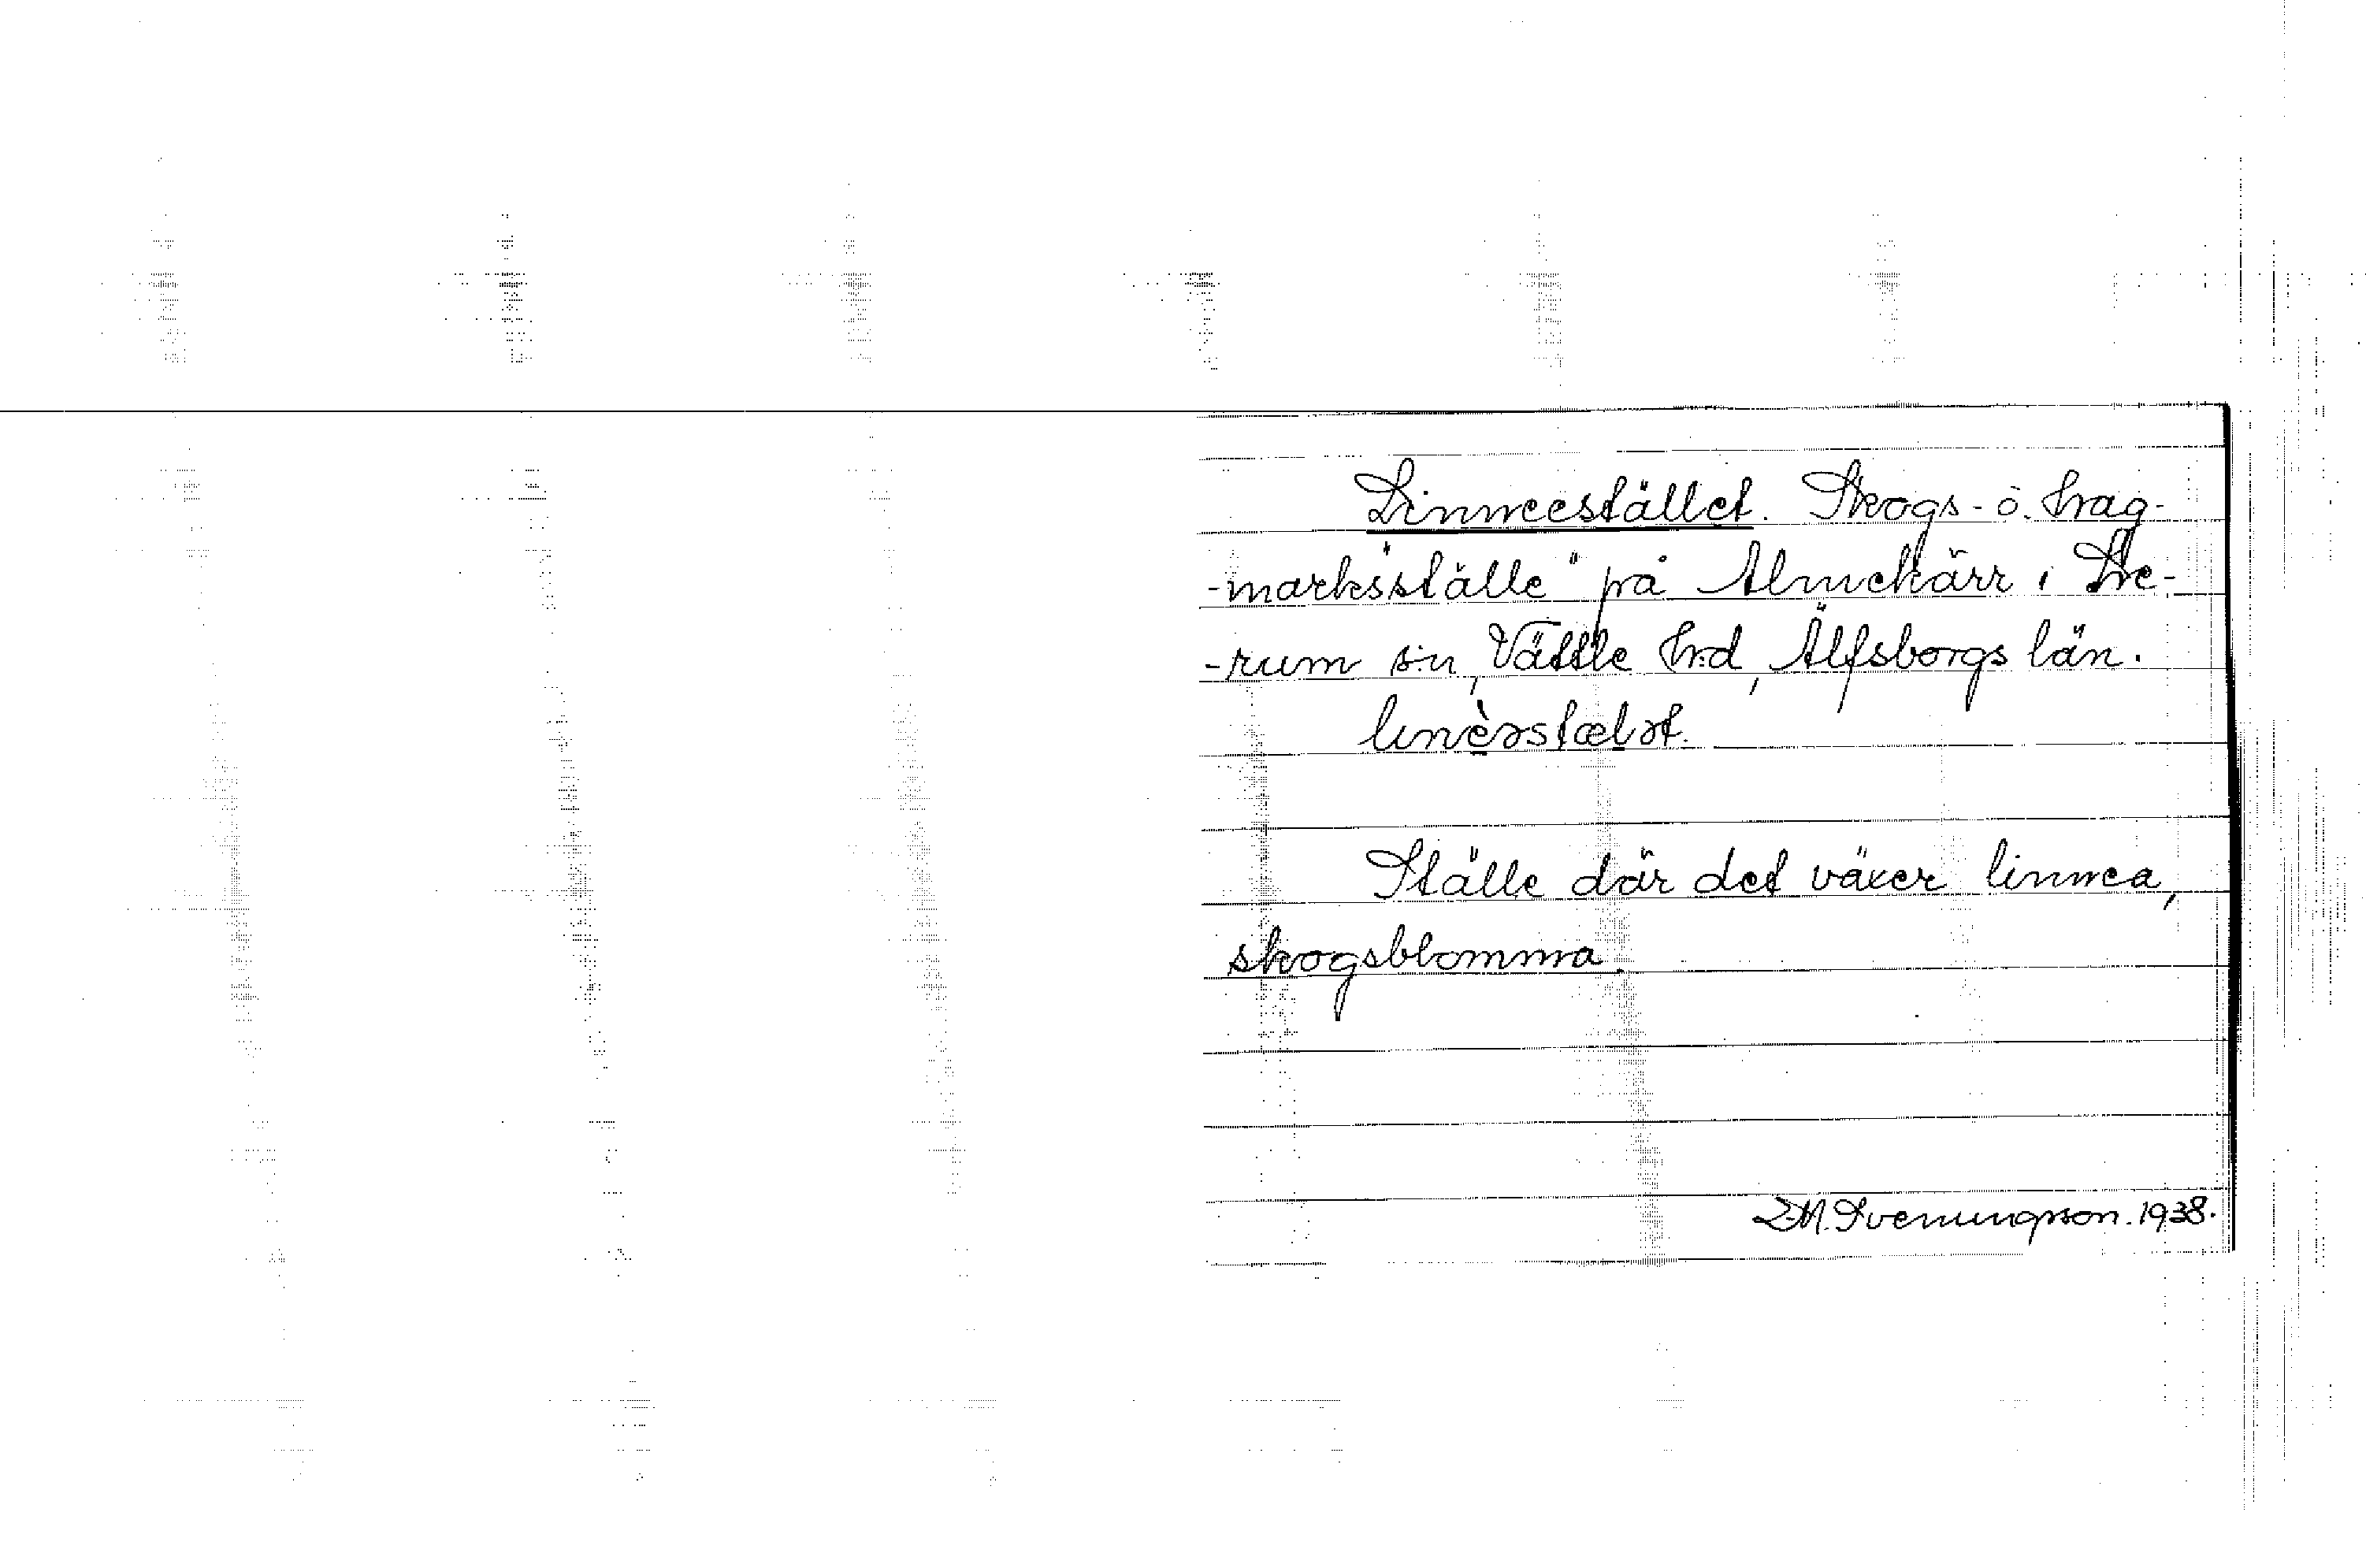 Linneestället. Skogs- o. hag-
-marks"ställe" på Almekärr i Le-
-rum sn, Vättle hd, Älfsborgs län.
linèǝstælǝt.
Ställe där det växer linnea,
skogsblomma.
E.M. Svenungsson. 1938.